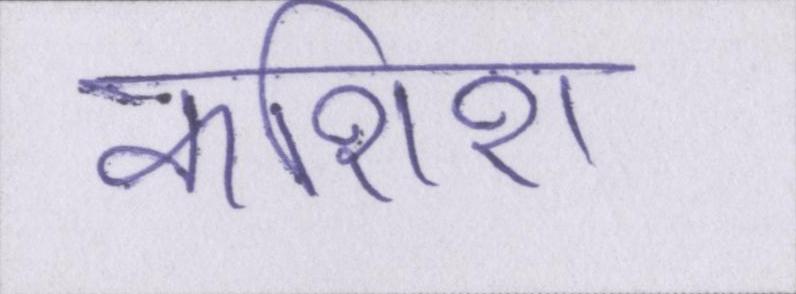 कशिश